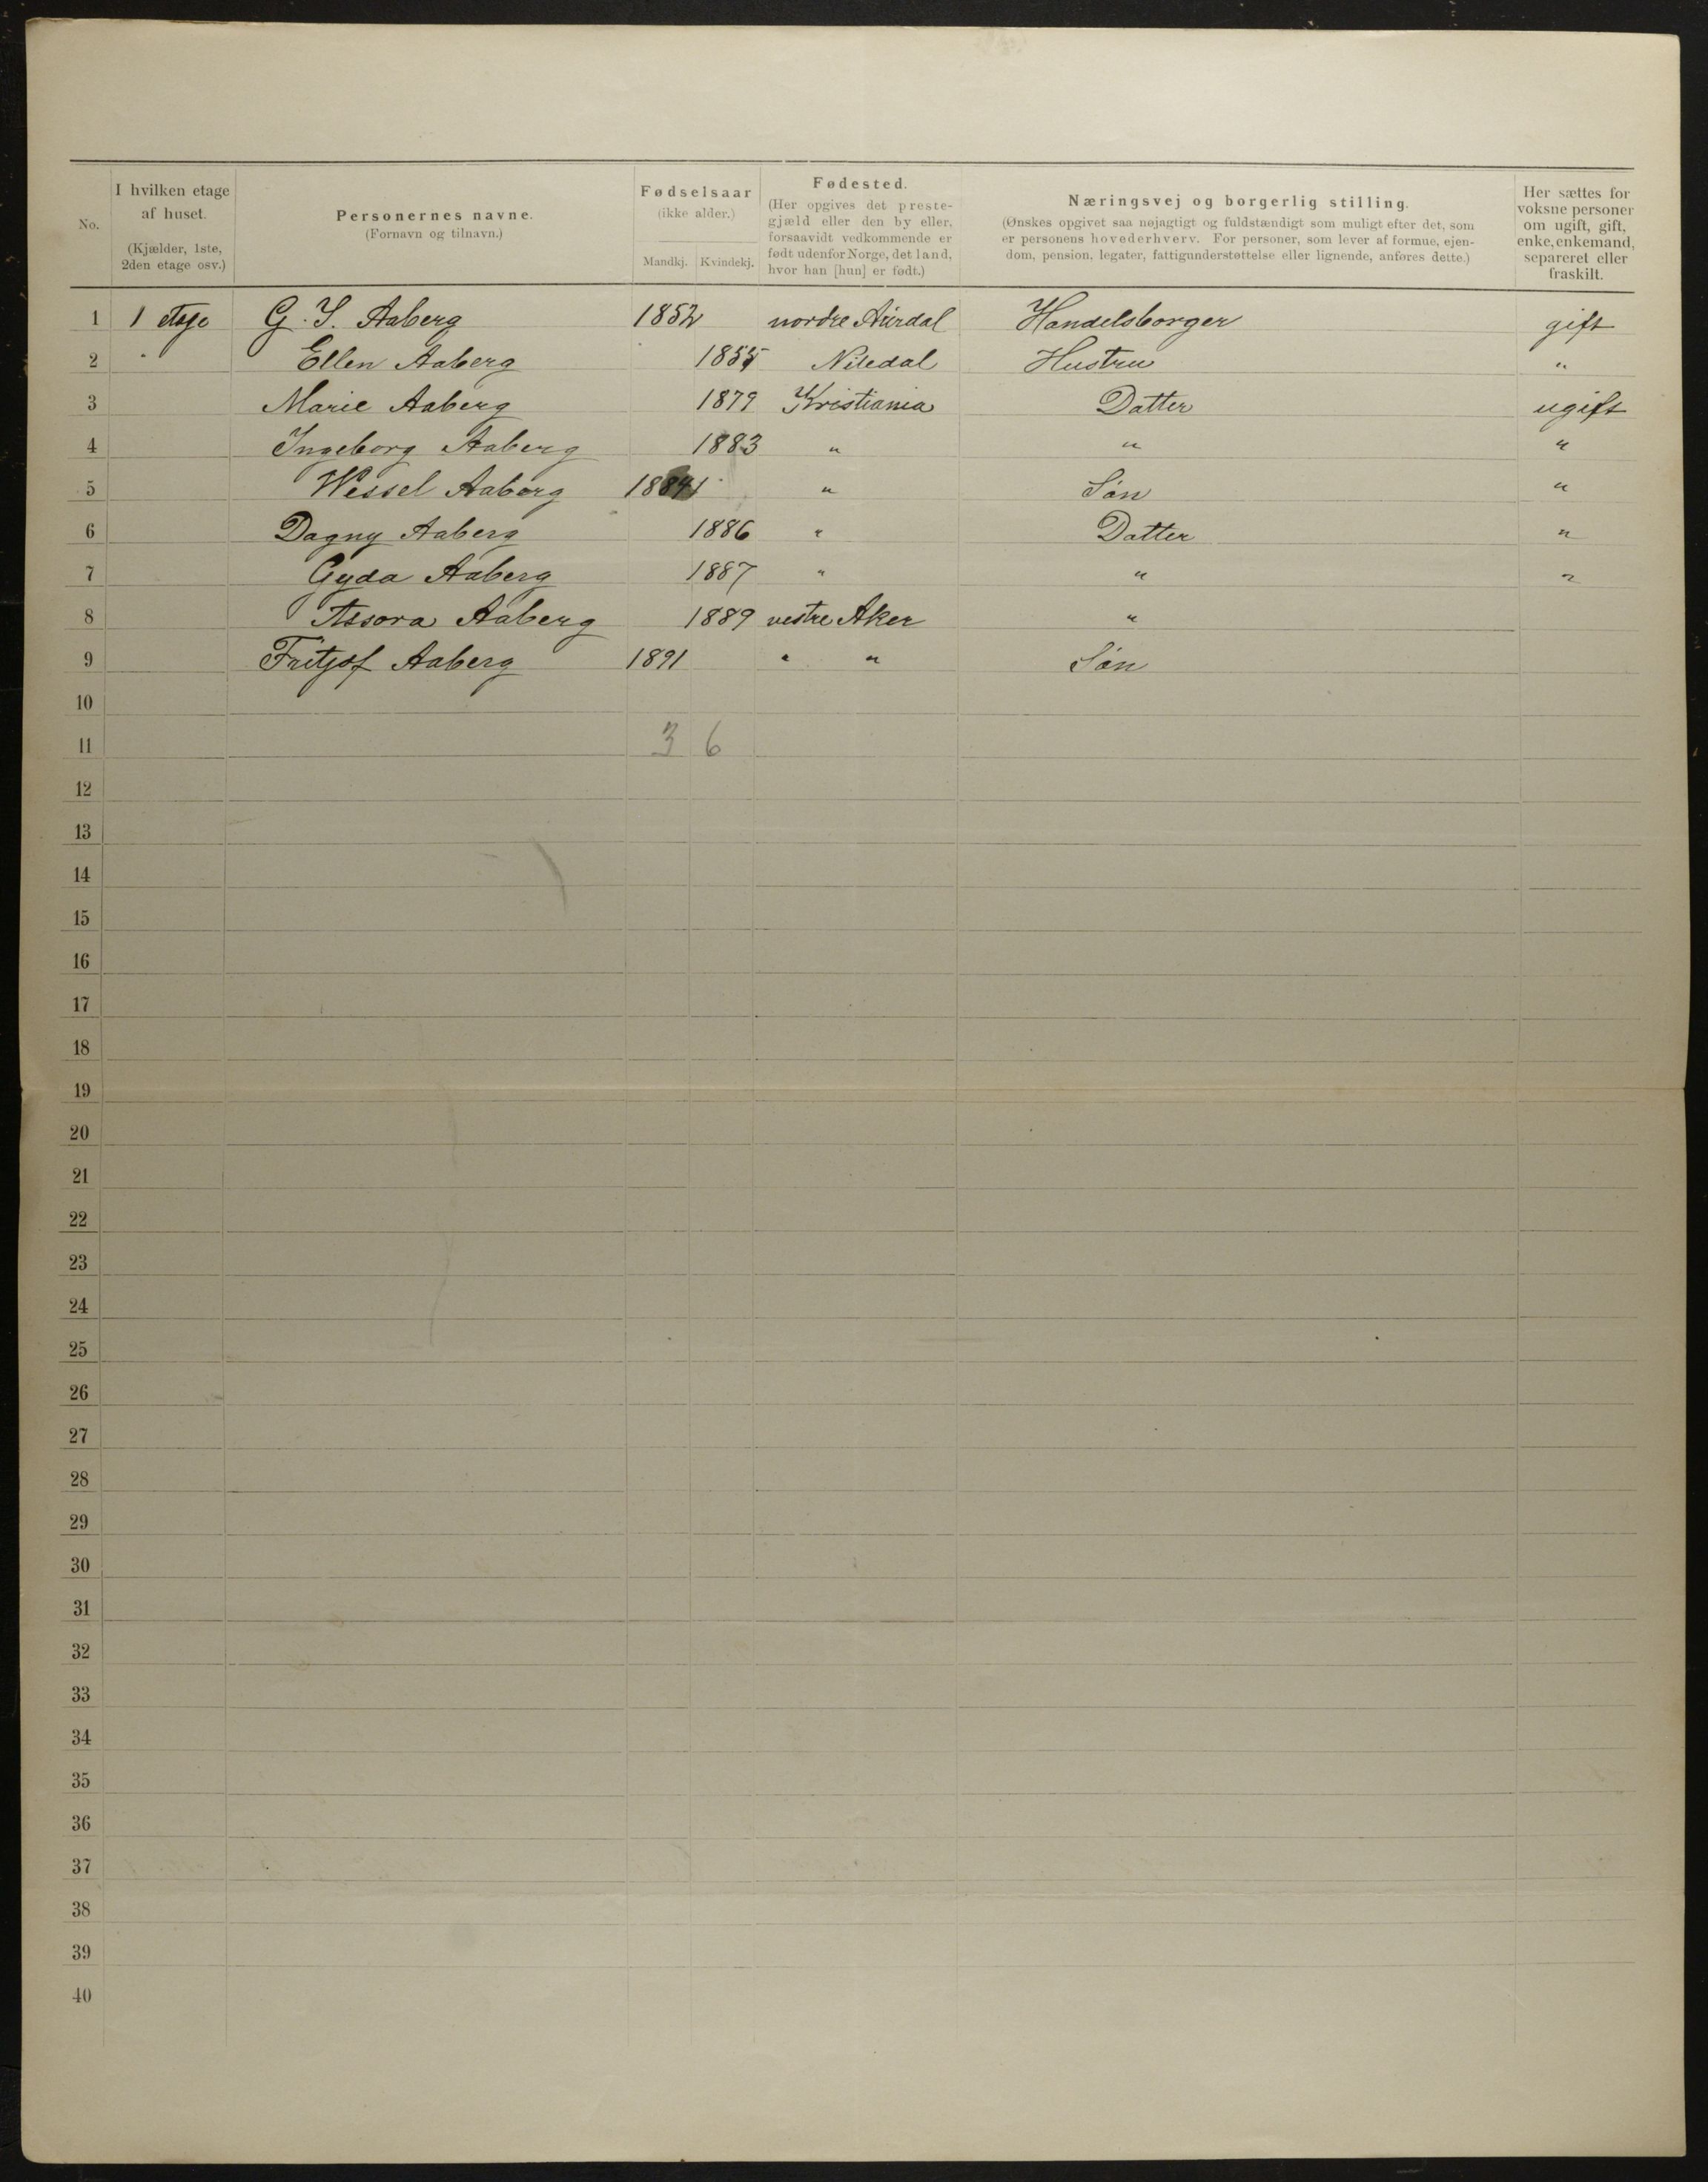 No.
I hvilken etage af huset.
(Kjælder, 1ste, 2den etage osv.)
Personernes navne.
(Fornavn og tilnavn.)
Fødselsaar
(ikke alder.)
Mandkj. Kvindekj.
Fødested.
(Her opgives det preste-
gjæld eller den by eller,
forsaavidt vedkommende er
født udenfor Norge, det land,
hvor han [hun] er født.)
Næringsvej og borgerlig stilling.
(Ønskes opgivet saa nøjagtigt og fuldstændigt som muligt efter det, som
er personens hovederhverv. For personer, som lever af formue, ejen-
dom, pension, legater, fattigunderstøttelse eller lignende, anføres dette.)
Her sættes for
voksne personer
om ugift, gift,
enke, enkemand,
separeret eller
fraskilt.
1 1 etage G. S. Aaberg 1852 nordre Aurdal Handelsborger gift
2 " Ellen Aaberg 1855 Nitedal Hustru "
3 Marie Aaberg 1879 Kristiania Datter ugift
4 Ingeborg Aaberg 1883 " " "
5 Wessel Aaberg 1884 " Søn "
6 Dagny Aaberg 1886 " Datter "
7 Gyda Aaberg 1887 " " "
8 Assora Aaberg 1889 vestre Aker "
9 Fritjof Aaberg 1891 " " Søn
10
11 3 6
12
13
14
15
16
17
18
19
20
21
22
23
24
25
26
27
28
29
30
31
32
33
34
35
36
37
38
39
40